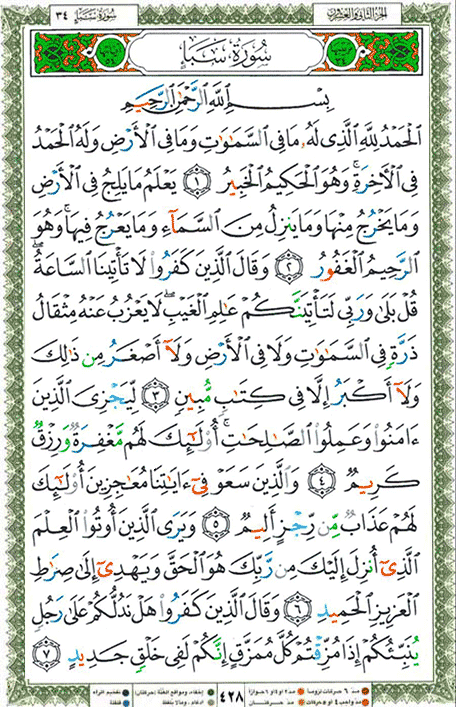 الجزء الثاني والعشرون
سورة سبإ ٣٤
سُورَةُ سَبَإٍ
بِسْمِ ٱللَّهِ ٱلرَّحْمَٰنِ ٱلرَّحِيمِ
ٱلْحَمْدُ لِلَّهِ ٱلَّذِى لَهُۥ مَا فِى ٱلسَّمَٰوَٰتِ وَمَا فِى ٱلْأَرْضِ وَلَهُ ٱلْحَمْدُ
فِى ٱلْءَاخِرَةِ ۚ وَهُوَ ٱلْحَكِيمُ ٱلْخَبِيرُ ١ يَعْلَمُ مَا يَلِجُ فِى ٱلْأَرْضِ
وَمَا يَخْرُجُ مِنْهَا وَمَا يَنزِلُ مِنَ ٱلسَّمَآءِ وَمَا يَعْرُجُ فِيهَا ۚ وَهُوَ
ٱلرَّحِيمُ ٱلْغَفُورُ ٢ وَقَالَ ٱلَّذِينَ كَفَرُوا۟ لَا تَأْتِينَا ٱلسَّاعَةُ ۖ
قُلْ بَلَىٰ وَرَبِّى لَتَأْتِيَنَّكُمْ عَٰلِمِ ٱلْغَيْبِ ۖ لَا يَعْزُبُ عَنْهُ مِثْقَالُ
ذَرَّةٍ فِى ٱلسَّمَٰوَٰتِ وَلَا فِى ٱلْأَرْضِ وَلَآ أَصْغَرُ مِن ذَٰلِكَ
وَلَآ أَكْبَرُ إِلَّا فِى كِتَٰبٍ مُّبِينٍ ٣ لِّيَجْزِىَ ٱلَّذِينَ
ءَامَنُوا۟ وَعَمِلُوا۟ ٱلصَّٰلِحَٰتِ ۚ أُو۟لَٰٓئِكَ لَهُم مَّغْفِرَةٌ وَرِزْقٌ
كَرِيمٌ ٤ وَٱلَّذِينَ سَعَوْ فِىٓ ءَايَٰتِنَا مُعَٰجِزِينَ أُو۟لَٰٓئِكَ
لَهُمْ عَذَابٌ مِّن رِّجْزٍ أَلِيمٌ ٥ وَيَرَى ٱلَّذِينَ أُوتُوا۟ ٱلْعِلْمَ
ٱلَّذِىٓ أُنزِلَ إِلَيْكَ مِن رَّبِّكَ هُوَ ٱلْحَقَّ وَيَهْدِىٓ إِلَىٰ صِرَٰطِ
ٱلْعَزِيزِ ٱلْحَمِيدِ ٦ وَقَالَ ٱلَّذِينَ كَفَرُوا۟ هَلْ نَدُلُّكُمْ عَلَىٰ رَجُلٍ
يُنَبِّئُكُمْ إِذَا مُزِّقْتُمْ كُلَّ مُمَزَّقٍ إِنَّكُمْ لَفِى خَلْقٍ جَدِيدٍ ٧
٤٢٨